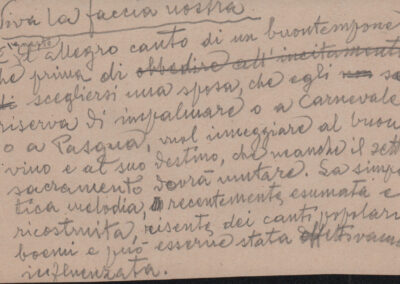 Viva la faccia nostra
È il vecchio allegro canto di un buontempone
che prima di obbedire all'incitamento
di scegliersi una sposa, che egli si
riserva di impalmare o a Carnevale
o a Pasqua, vuol inneggiare al buon
vino e al suo destino, che neanche il sett
sacramento dovrà mutare. La simpa
tica melodia, recentemente esumata e
ricostruita, risente dei canti popolari
boemi e può esserne stata effettivamen
influenzata.